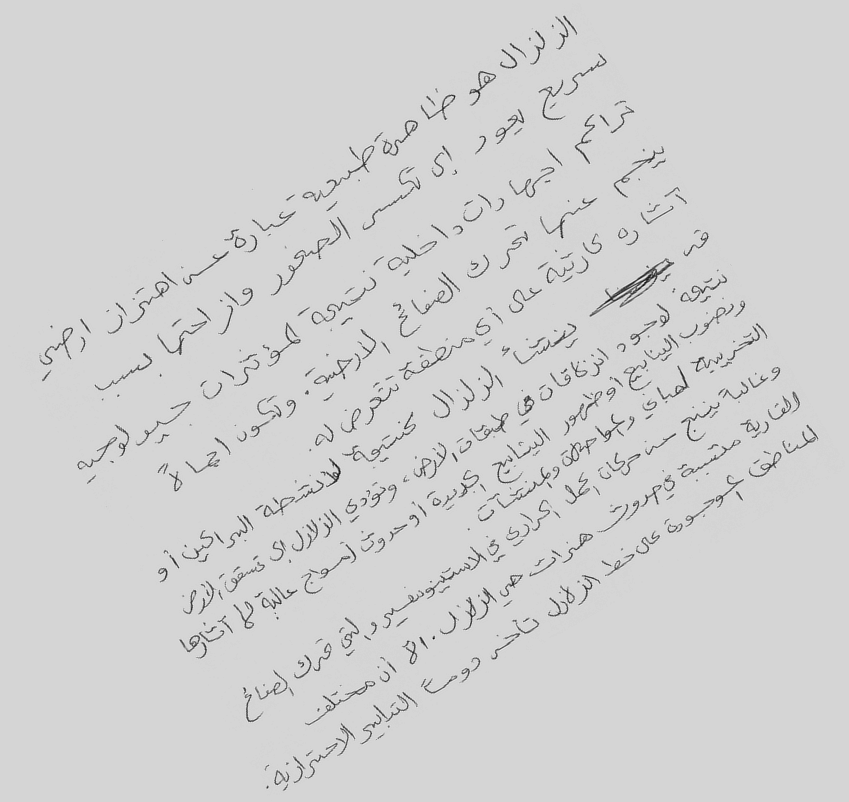 الزلزال هو ظاهرة طبيعية عبارة عن اهتزاز ارضي
سريع يعود إلى تكسر الصخور وازاحتها بسبب
تراكم اجهادات داخلية نتيجة لمؤثرات جيولوجية
ينجم عنها تحرك الصفائح الارضية. وتكون اجمالاً
آثاره كارثية على أي منطقة تتعرض له.
قد ينشأ الزلزال كنتيجة لأنشطة البراكين أو
نتيجة لوجود انزلاقات في طبقات الأرض، وتؤدي الزلازل إلى تشقق الأرض
ونضوب الينابيع أو ظهور الينابيع الجديدة أو حدوث أمواج عالية لها آثارها
التخريبية لمباني والمواصلات والمنشآت.
وغالبا ينتج عن حركات الحمل الحراري في الاستينوسفير والتي تحرك الصفائح
القارية متسببة في حدوث هزات هي الزلازل. الا أن مختلف
المناطق الموجودة على خط الزلازل تأخذ دوماً التدابير الاحترازية.